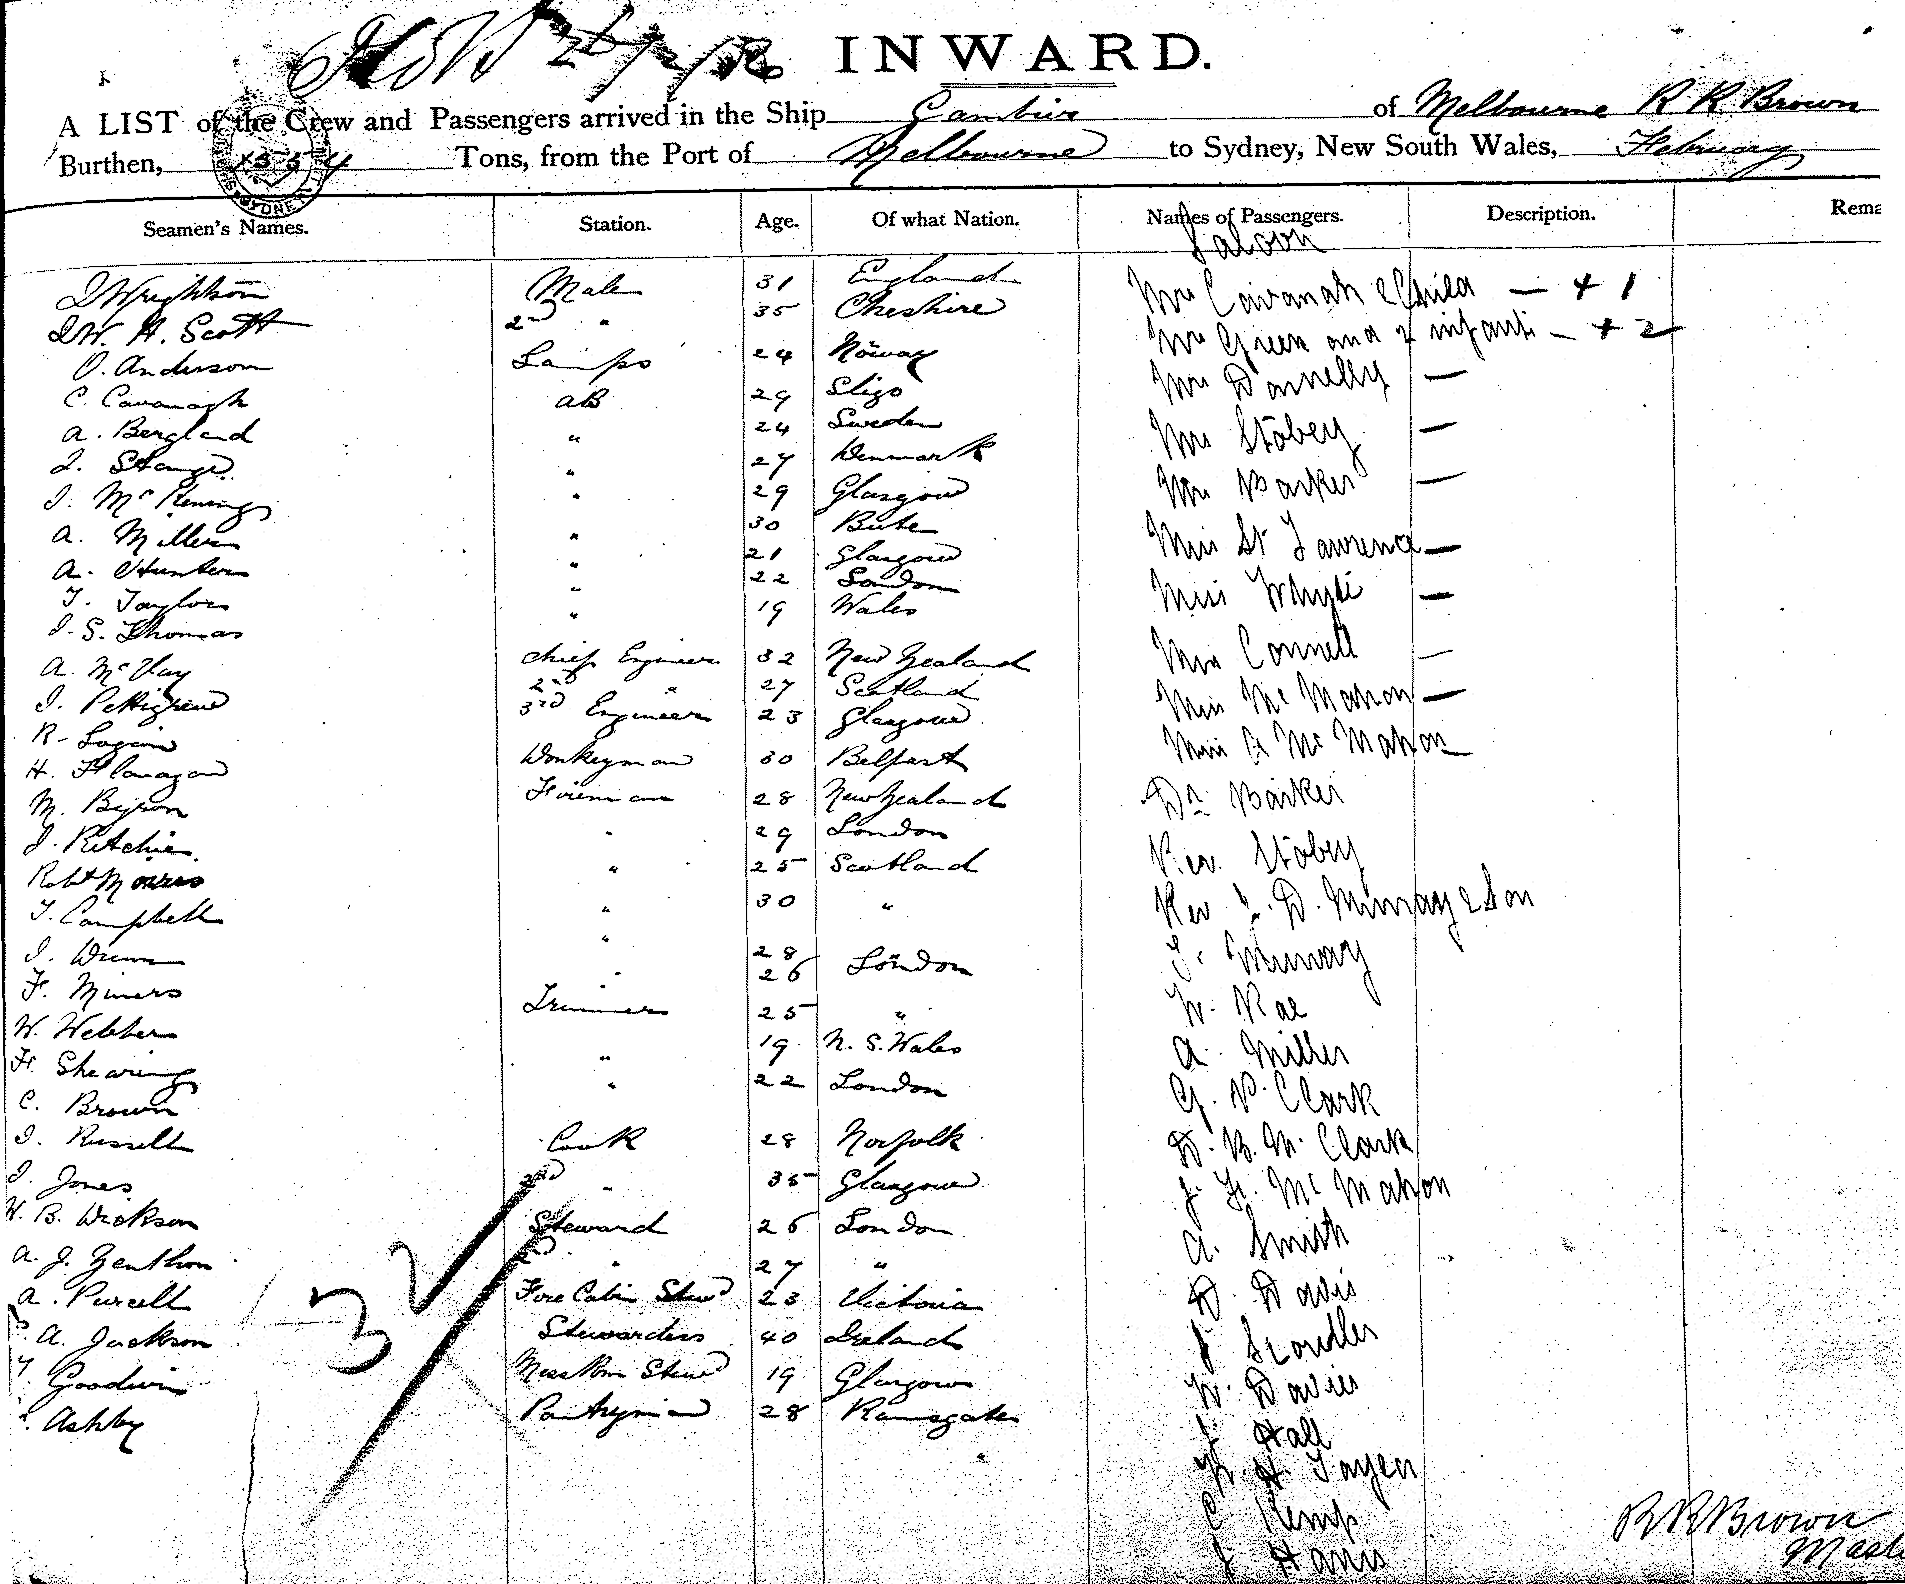 INWARD.
A LIST of the Crew and Passengers arrived in the Ship Gambier of Melbourne R R Brown
Burthen, Tons, from the Port of Melbourne to Sydney, New South Wales, February
Seamen's Names. Station. Age. Of what Nation. Names of Passengers. Description. Rema
Saloon
J Wrightson Mate 31 England Mrs Cavanah & Child — + 1
W. H. Scott 2nd " 35 Cheshire Mrs Green and 2 infants — + 2
O. Anderson Lamps 24 Norway Mrs Donnelly —
C. Cavanagh AB 29 Sligo Mrs Stobey —
A. Bergland " 24 Sweden Mrs Barker —
J. Stange " 27 Denmark Miss St Lawrence —
J. Mc " 29 Glasgow Miss Whyte —
A. Miller " 30 Bute Miss Connell —
A. Hunter " 21 Glasgow Miss Mc Mahon —
T. Taylor " 22 London Miss A Mc Mahon
J. S. Thomas " 19 Wales Dr Barker
A. Mc Vay Chief Engineer 32 New Zealand Rev. Stobey
J. Pettigrew 2nd " 27 Scotland Rev D. Murray & Son
R. Logan 3rd Engineer 23 Glasgow Murray
H. Flanagan Donkeyman 30 Belfast W. Rae
M. Byron Fireman 28 New Zealand A. Miller
J. Ritchie " 29 London G. P. Clark
Robt Morris " 25 Scotland D. B. M. Clark
T. Campbell " 30 " J. F. Mc Mahon
J. " 28 London A. Smith
F. Miners " 26 D. Davis
W. Webber Trimmer 25 " J
H. Shearing " 19 N. S. Wales W. Davies
C. Brown " 22 London J. Hall
J. Russell Cook 28 Norfolk W. H.
J. Jones 2nd " 35 Glasgow C Kemp
W. B. Dickson Steward 26 London J Harris
A. J. 2nd " 27 "
A. Purcell Fore Cabin Stewd 23 Victoria
A. Jackson Stewardess 40 Ireland
Goodwin Mess Rm Stewd 19 Glasgow
Ashby Pantryman 28 Ramsgate
32
R R Brown
Maste